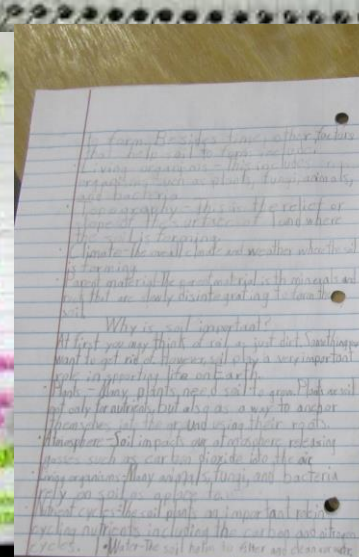 to form. Besides time, other factors
that help soil to form include:
Living organisms - this includes
organisms such as plants, fungi, animals,
and bacteria
Topography - this is the relief or
slope of the surface of land where
the soil is forming
· Climate - the overall climate and weather where the soil
is forming
Parent material - the parent material is the minerals and
rocks that are slowly disintegrating to form the
soil
Why is soil important?
At first you may think of soil as just dirt. Something you
want to get rid of. However, soil play a very important
role in supporting life on Earth.
· Plants - Many plants need soil to grow. Plants use soil
not only for nutrients, but also as a way to anchor
themselves into the ground using their roots.
· Atmosphere - Soil impacts our atmosphere releasing
gasses such as carbon dioxide into the air
· Living organisms - Many animals, fungi, and bacteria
rely on soil as a place to
· Nutrient cycles - the soil plants an important role in
cycling nutrients including the carbon and nitrogen
cycles. · Water - The soil helps to filter and clean our